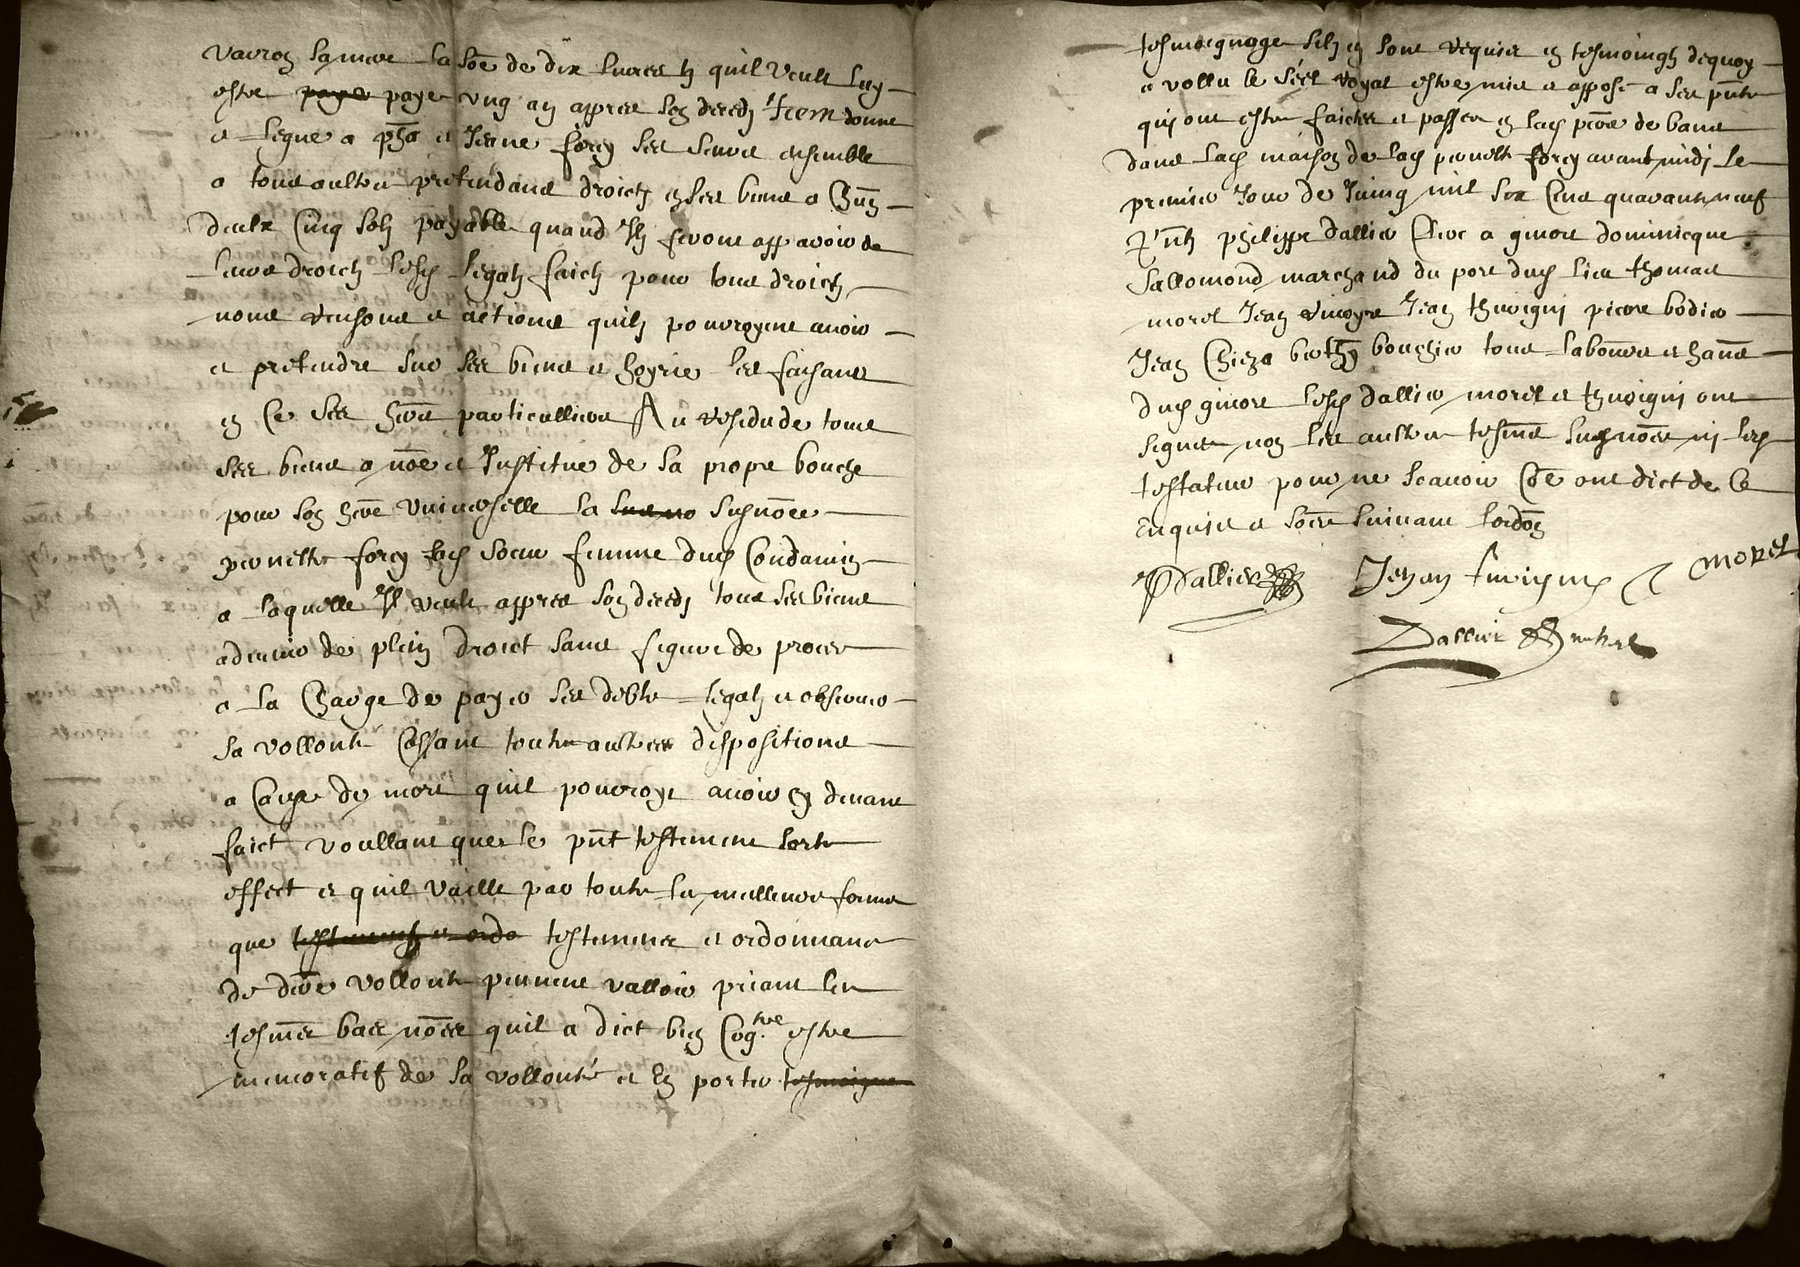 la so͞e de dix livres ts quil veult luy
estre paye paye ung an appres son deceds Item donne
et legue a et Jeane forey ses seurs ensemble
a tous aultres pretendans droictz en ses biens a
deulx cinq solz payable quand Ilz feront apparoir de
leurs droictz lesd legatz faictz pour tous droictz
noms raysons et actions quilz pourroyent avoir
et pretendre sur ses biens et hoyrie les faisant
en ce ses particulliers Au residu de tous
ses biens a no͞e et Institue de sa propre bouche
pour son universelle la susno͞ee
pernette forey sad soeur femme dud Condamin
a laquelle Il veult appres son deceds tous ses biens
advenir de plein droict sans figure de proces
a la Charge de payer ses debtes legatz et observer
sa vollonte Cessant toutes aultres dispositions
a Cause de mort quil pourroyt avoir cy devant
faict voullant que le pn͞t testement sorte
effect et quil vaille par toute la meilleure forme
que testemens et ordo testemens et ordonnance
de vollonte peuvent valloir priant les
tesm͞es bas no͞es quil a dict bien estre
memoratif de sa vollonté et En porter tesmoigna
tesmoignage silz en sont requis en tesmoingz dequoy
a vollu le séel royal estre mis et apposé a ses pn͞tes
qui ont esté faictes et passées en lad de bans
dans lad maison de lad pernette forey avant midi le
premier Jour de Juing mil six Cens quarante neuf
philippe Dallier Clerc a givort dominicque
Sallomond marchand du port dud lieu thomas
morel Jean Jean thivigni pierre bodier
Jean bouchie tous
dud givort lesd dallier morel et thivigni ont
signes non les aultres tesm͞s susno͞es ni led
testateur pour ne scavoir Co͞e ont dict de Ce
Enquis et so͞es suivant lordo͞n
PDallier Jehan morel
Dallier